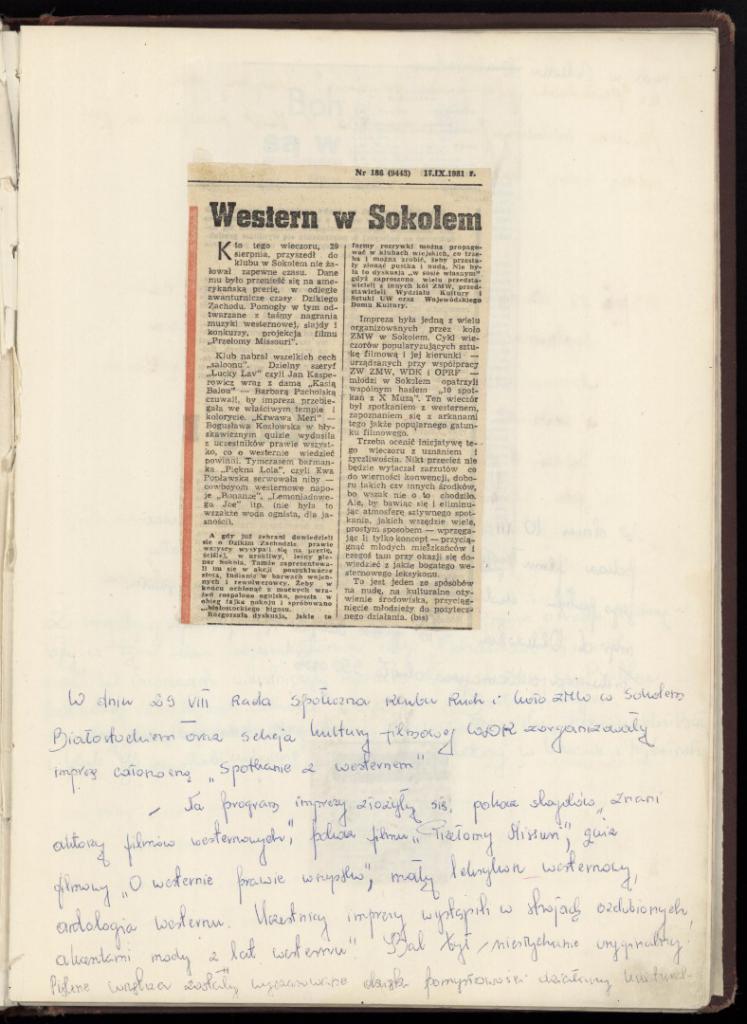 Nr 186 (9443) 17.IX.1981 r.
Western w Sokolem
Kto tego wieczoru, 29
sierpnia, przyszedł do
klubu w Sokolem nie ża-
łował zapewne czasu. Dane
mu było przenieść się na ame-
rykańską prerię, w odległe
awanturnicze czasy Dzikiego
Zachodu. Pomogły w tym od-
twarzane z taśmy nagrania
muzyki westernowej, slajdy i
konkursy, projekcja filmu
„Przełomy Missouri".
Klub nabrał wszelkich cech
„saloonu". Dzielny szeryf
„Lucky Lav" czyli Jan Kaspe-
rowicz wraz z damą „Kasią
Balou" — Barbarą Pacholską
czuwali, by impreza przebie-
gała we właściwym tempie i
kolorycie. „Krwawa Meri" —
Bogusława Kozłowska w bły-
skawicznym quizie wydusiła
z uczestników prawie wszyst-
ko, co o westernie wiedzieć
powinni. Tymczasem barman-
ka „Piękna Lola", czyli Ewa
Popławska serwowała niby —
cowboyom westernowe napo-
je „Bonanze", „Lemoniadowe-
go Joe" itp. (nie była to
wszakże woda ognista, dla ja-
sności).
A gdy już zebrani dowiedzieli
się o Dzikim Zachodzie prawie
wszyscy wysypali się na prerię,
ściślej, w urokliwy, leśny ple-
ner Sokola. Tamże zaprezentowa-
li im się w akcji poszukiwacze
złota, Indianie w barwach wojen-
nych i rewolwerowcy. Żeby w
końcu ochłonąć z mocnych wra-
żeń rozpalono ognisko, poszła w
obieg fajka pokoju i spróbowano
„białostockiego bigosu.
Rozgorzała dyskusja, jakie to
formy rozrywki można propago-
wać w klubach wiejskich, co trze-
ba i można zrobić, żeby przesta-
ły zionąć pustką i nudą. Nie by-
ła to dyskusja „w sosie własnym"
gdyż zaproszono wielu przedsta-
wicieli z innych kół ZMW, przed-
stawicieli Wydziału Kultury i
Sztuki UW oraz Wojewódzkiego
Domu Kultury.
Impreza była jedną z wielu
organizowanych przez koło
ZMW w Sokolem. Cykl wie-
czorów popularyzujących sztu-
kę filmową i jej kierunki —
urządzanych przy współpracy
ZW ZMW, WDK i OPRF —
młodzi w Sokolem opatrzyli
wspólnym hasłem „10 spot-
kań z X Muzą". Ten wieczór
był spotkaniem z westernem,
zapoznaniem się z arkanami
tego jakże popularnego gatun-
ku filmowego.
Trzeba ocenić inicjatywę te-
go wieczoru z uznaniem i
życzliwością. Nikt przecież nie
będzie wytaczał zarzutów co
do wierności konwencji, dobo-
ru takich czy innych środków,
bo wszak nie o to chodziło.
Ale, by bawiąc się i eliminu-
jąc atmosferę sztywnego spot-
kania, jakich wszędzie wiele,
prostym sposobem — wprzęga-
jąc li tylko koncept — przycią-
gnąć młodych mieszkańców i
czegoś tam przy okazji się do-
wiedzieć z jakże bogatego we-
sternowego leksykonu.
To jest jeden ze sposobów
na nudę, na kulturalne oży-
wienie środowiska, przyciąg-
nięcie młodzieży do pożytecz-
nego działania. (bis)
W dniu 29 VIII Rada Społeczna Klubu Ruch i koło ZMW w Sokolem
Białostockiem oraz sekcja kultury filmowej WDK zorganizowały
imprezę całonocną „Spotkanie z westernem"
— Na program imprezy złożyły się: pokaz slajdów „Znani
aktorzy filmów westernowych", pokaz filmu „Przełomy Missuri", quiz
filmowy „O westernie prawie wszystko", mały leksykon westernowy,
antologia westernu. Uczestnicy imprezy wystąpili w strojach ozdobionych
akcentami mody z lat westernu". Bal był niesłychanie oryginalny.
Piękne wnętrza zostały wyczarowane dzięki pomysłowości działaczy